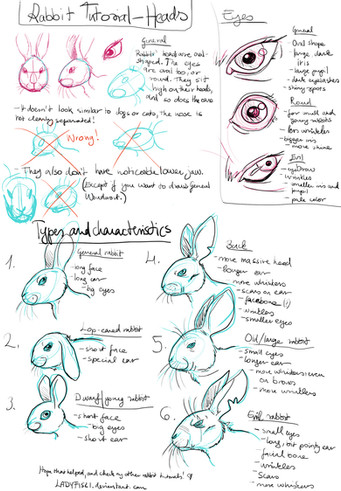 Rabbit Tutorial-Heads
General
Rabbits' heads are oval-
shaped. The eyes
are oval too, or
round. They sit
high on their heads,
and so does the nose
- It doesn't look similar to dogs or cats, the nose is
not clearly separated!
Wrong!
- They also don't have noticeable lower jaw.
(Except if you want to draw General
Woundwort.)
Eyes
General
- Oval shape
- large, dark
iris
- large pupil
- dark eyelashes
- shiny spots
Round
- for small and
young rabbits
- less wrinkles
- bigger iris
- more shine
Evil
- eyebrow
- wrinkles
- smaller iris and
pupil
- pale color
Types and characteristics
1.
General rabbit
- long face
- long ear
- big eyes
2.
Lop-eared rabbit
- short face
- special ear
3.
Dwarf/young rabbit
- short face
- big eyes
- short ear
4.
Buck
- more massive head
- longer ear
- more whiskers
- scars on ear
- facebone (!)
- wrinkles
- smaller eyes
5.
Old/large rabbit
- small eyes
- longer ears
- more whiskers even
on brows
- more wrinkles
6.
Evil rabbit
- small eyes
- long, but pointy ear
- facial bone
- wrinkles
- scars
- more whiskers
Hope that helped, and check my other rabbit tutorials!
LADYFISZI.deviantart.com